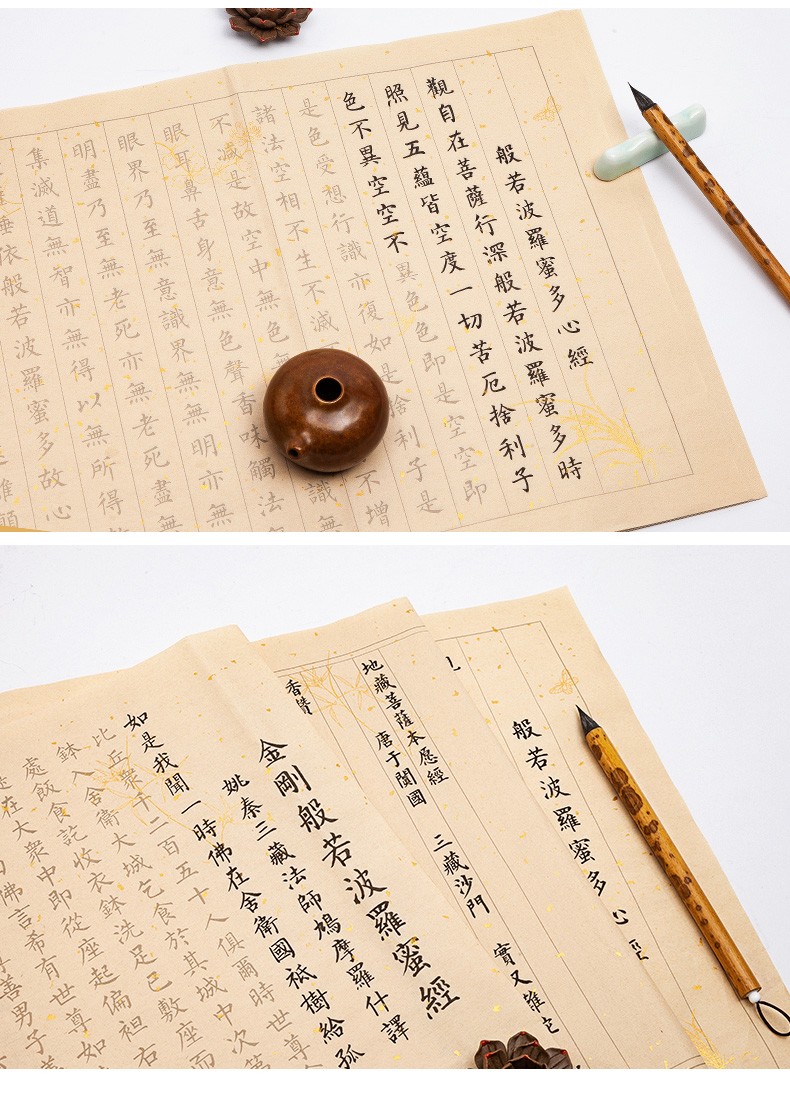 般若波羅蜜多心經
觀自在菩薩行深般若波羅蜜多時
照見五蘊皆空度一切苦厄捨利子
色不異空空不異色色即是空空即
是色受想行識亦復如是捨利子是
諸法空相不生不滅不增
不減是故空中無色識無
眼耳鼻舌身意無色聲香味觸法
眼界乃至無意識界無明亦無
明盡乃至無老死亦無老死盡無
集滅道無智亦無得以無所得
埵依般若波羅蜜多故心
般若波羅蜜多心
地藏菩薩本愿經
唐于闐國 三藏沙門 實又難
香贊
金剛般若波羅蜜經
姚秦三藏法師鳩摩羅什譯
如是我聞一時佛在舍衛國祇樹給孤
比丘眾千二百五十人俱爾時世尊
鉢入舍衛大城乞食於其城中次第
處飯食訖收衣鉢洗足已敷座而
在大眾中即從座起偏袒右
佛言希有世尊如
善男子善